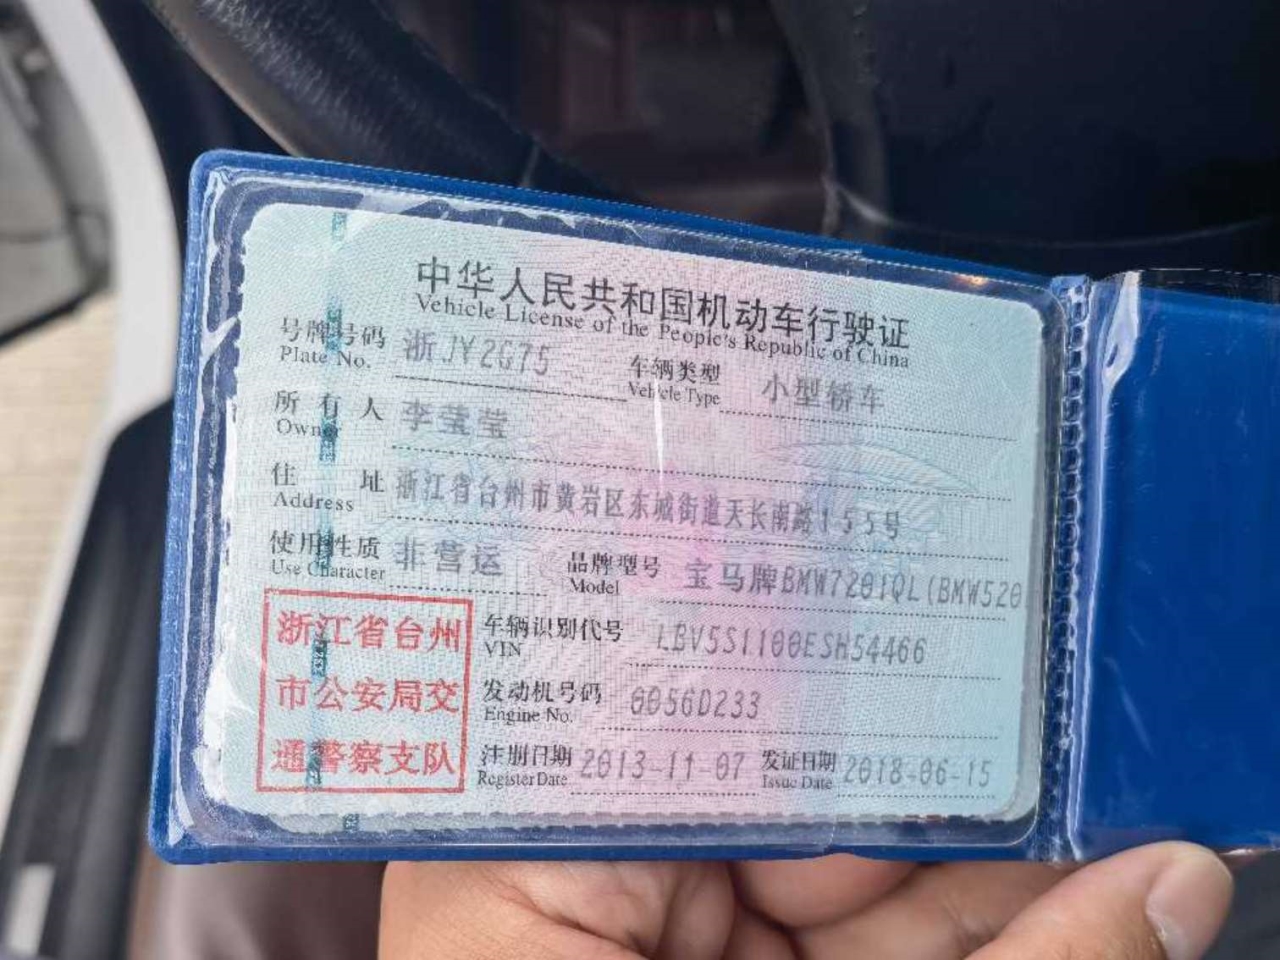 中华人民共和国机动车行驶证
Vehicle License of the People's Republic of China
号牌号码 浙JY2G75 车辆类型 小型轿车
Plate No. Vehicle Type
所有人 李莹莹
Owner
住址 浙江省台州市黄岩区东城街道天长南路155号
Address
使用性质 非营运 品牌型号 宝马牌BMW7201QL(BMW520
Use Character Model
浙江省台州
市公安局交
通警察支队
车辆识别代号 LBV5S1100ESH54466
VIN
发动机号码 0056D233
Engine No.
注册日期 2013-11-07 发证日期 2018-06-15
Register Date Issue Date